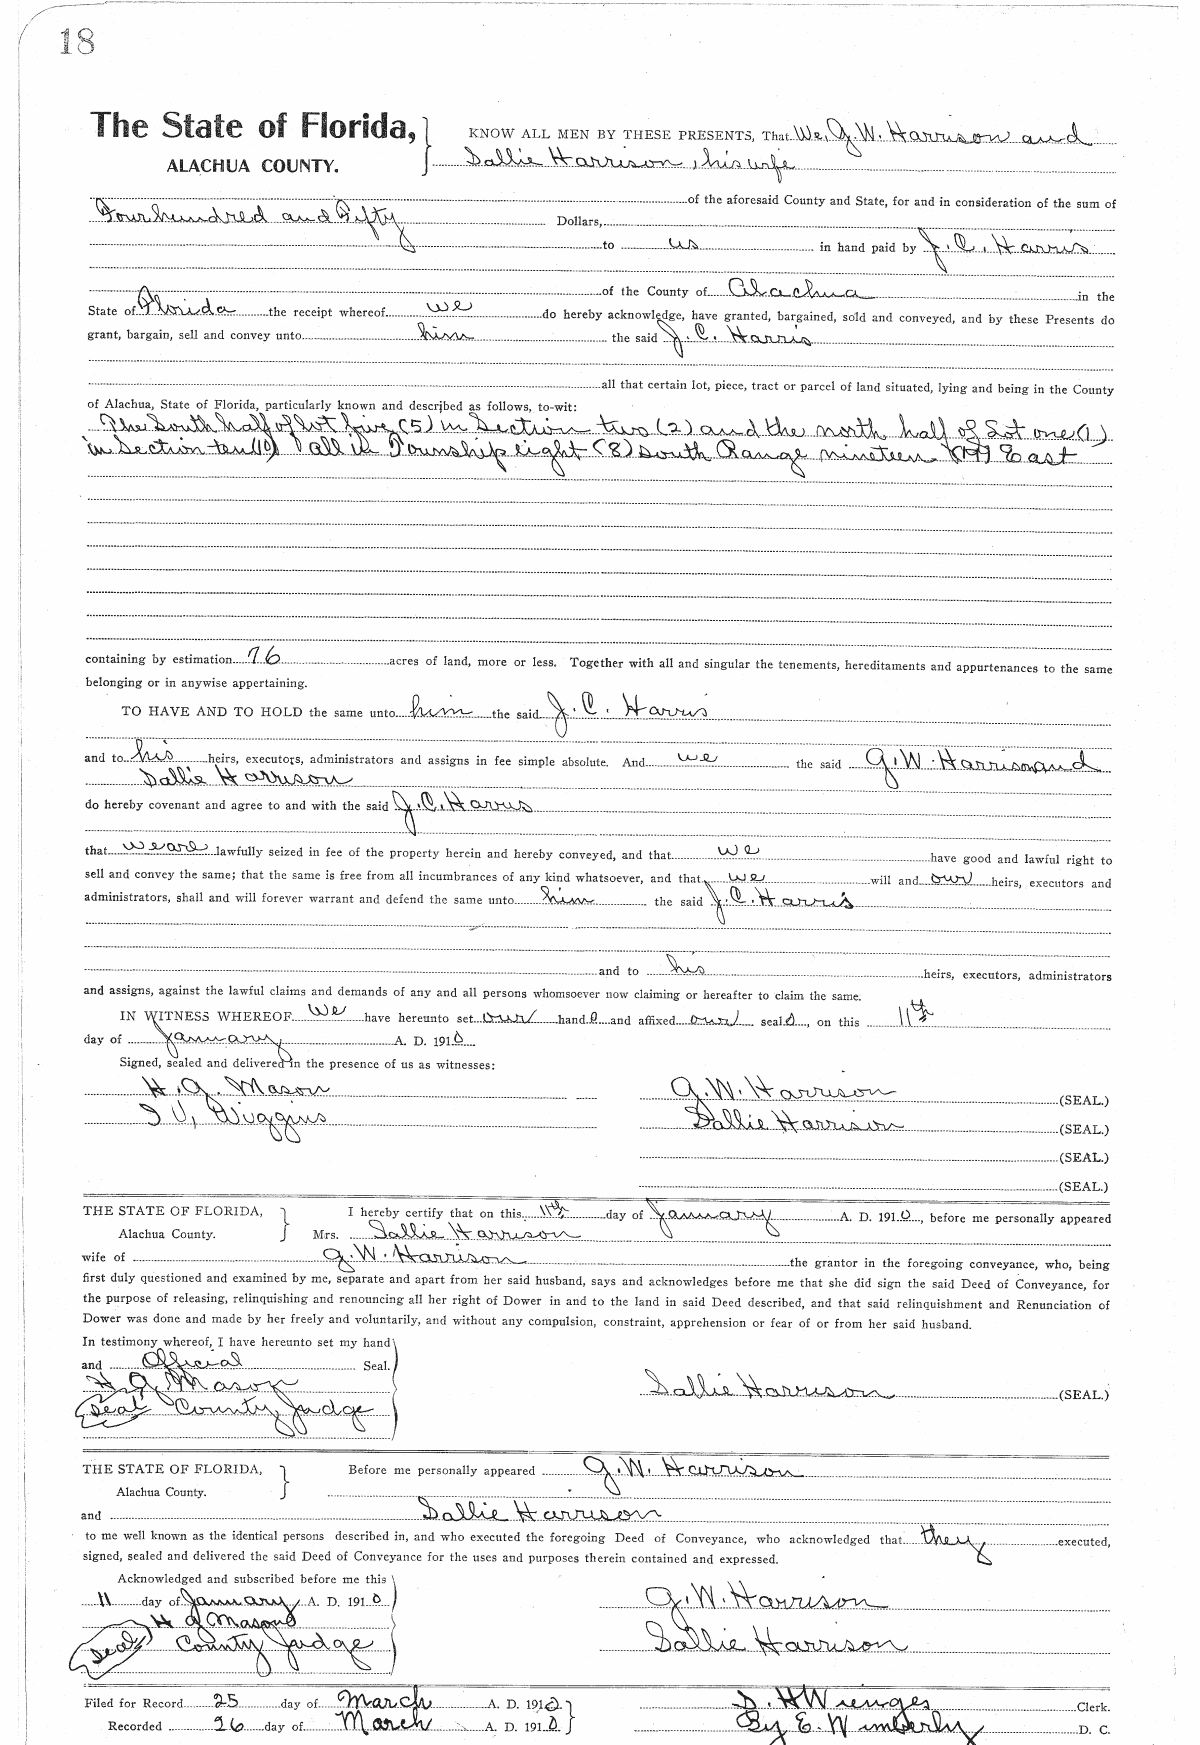 18
The State of Florida,
ALACHUA COUNTY.
KNOW ALL MEN BY THESE PRESENTS, That We, G.W. Harrison and
Sallie Harrison, his wife
of the aforesaid County and State, for and in consideration of the sum of
Four hundred and Fifty Dollars,
to us in hand paid by J. C. Harris
of the County of Alachua in the
State of Florida the receipt whereof we do hereby acknowledge, have granted, bargained, sold and conveyed, and by these Presents do
grant, bargain, sell and convey unto him the said J. C. Harris
all that certain lot, piece, tract or parcel of land situated, lying and being in the County
of Alachua, State of Florida, particularly known and described as follows, to-wit:
The South half of Lot five (5) in Section two (2) and the north half of Lot one (1)
in Section ten (10) all in Township eight (8) South Range nineteen (19) East
containing by estimation 76 acres of land, more or less. Together with all and singular the tenements, hereditaments and appurtenances to the same
belonging or in anywise appertaining.
TO HAVE AND TO HOLD the same unto him the said J. C. Harris
and to his heirs, executors, administrators and assigns in fee simple absolute. And we the said G.W. Harrison and
Sallie Harrison
do hereby covenant and agree to and with the said J.C. Harris
that we are lawfully seized in fee of the property herein and hereby conveyed, and that we have good and lawful right to
sell and convey the same; that the same is free from all incumbrances of any kind whatsoever, and that we will and our heirs, executors and
administrators, shall and will forever warrant and defend the same unto him the said J.C. Harris
and to his heirs, executors, administrators
and assigns, against the lawful claims and demands of any and all persons whomsoever now claiming or hereafter to claim the same.
IN WITNESS WHEREOF We have hereunto set our hand s and affixed our seal s, on this 11th
day of January A. D. 1910
Signed, sealed and delivered in the presence of us as witnesses:
H. G. Mason G.W. Harrison (SEAL.)
Wiggins Sallie Harrison (SEAL.)
(SEAL.)
(SEAL.)
THE STATE OF FLORIDA, I hereby certify that on this 11th day of January A. D. 1910, before me personally appeared
Alachua County. Mrs. Sallie Harrison
wife of G.W. Harrison the grantor in the foregoing conveyance, who, being
first duly questioned and examined by me, separate and apart from her said husband, says and acknowledges before me that she did sign the said Deed of Conveyance, for
the purpose of releasing, relinquishing and renouncing all her right of Dower in and to the land in said Deed described, and that said relinquishment and Renunciation of
Dower was done and made by her freely and voluntarily, and without any compulsion, constraint, apprehension or fear of or from her said husband.
In testimony whereof, I have hereunto set my hand
and Official Seal.
H. G. Mason Sallie Harrison (SEAL.)
Seal County Judge
THE STATE OF FLORIDA, Before me personally appeared G.W. Harrison
Alachua County.
and Sallie Harrison
to me well known as the identical persons described in, and who executed the foregoing Deed of Conveyance, who acknowledged that they executed,
signed, sealed and delivered the said Deed of Conveyance for the uses and purposes therein contained and expressed.
Acknowledged and subscribed before me this
11 day of January A. D. 1910 G.W. Harrison
H G Mason
Seal County Judge Sallie Harrison
Filed for Record 25 day of March A. D. 1910 S. H Wienges Clerk.
Recorded 26 day of March A. D. 1910 By E. Wimberly D. C.